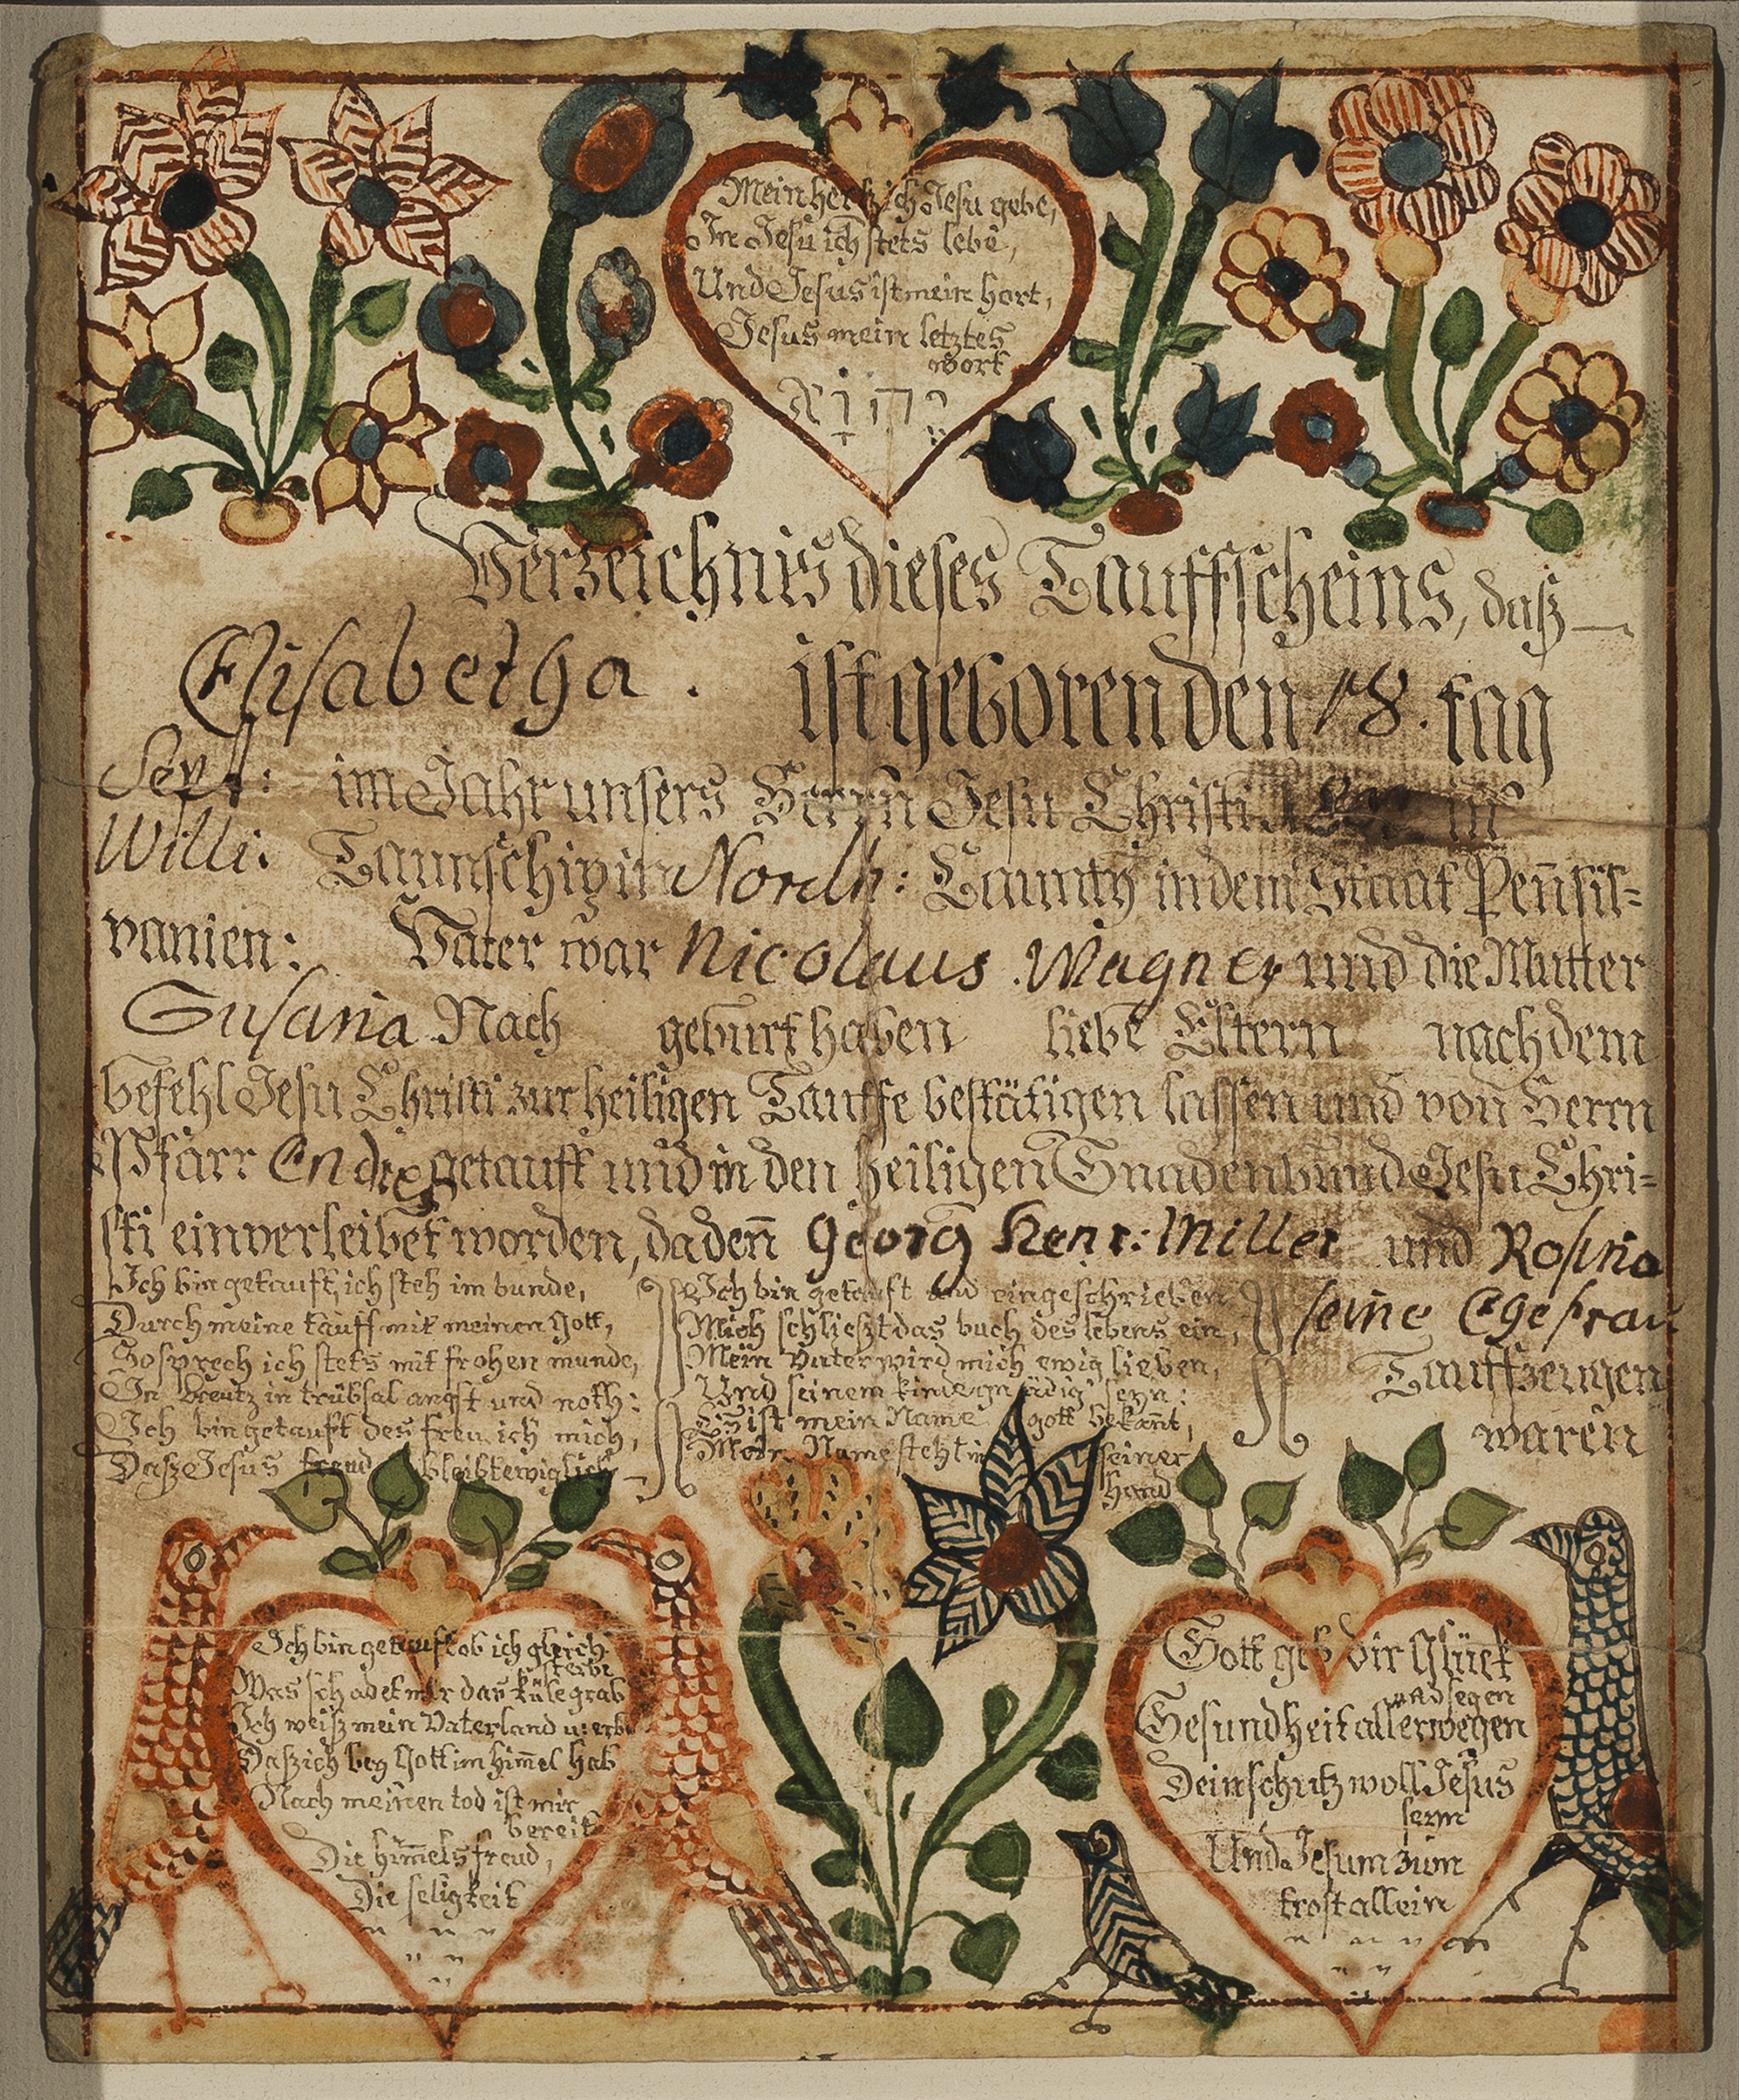 Mein hertz ich Jesu gebe,
In Jesu ich stets lebe,
Und Jesus ist mein hort,
Jesus mein letztes
wort
Verzeichnis dieses Tauffscheins, daß
Elisabetha. ist geboren den 18. tag
Sept: im Jahr unsers Herrn Jesu Christi in
Willi: Taunschip in North: Caunty in dem Staat Pen̄sil=
vanien: Vater war Nicolaus Wagner und die Mutter
Susana Nach geburt haben liebe Eltern nach dem
befehl Jesu Christi zur heiligen Tauffe bestätigen lassen und von Herrn
Pfarr getaufft und in den heiligen Gnadenbund Jesu Chri=
sti einverleibet worden, da den̄ Georg Henr: Miller und Rosina
seine Ehefrau
Tauffzeugen
waren
Ich bin getaufft, ich steh im bunde,
Durch meine tauff mit meinen gott,
So sprech ich stets mit frohen munde,
In Kreutz in trübsal angst und noth:
Ich bin getauft des freu ich mich,
Dasz Jesus freud bleibt ewiglich
Ich bin getauft und eingeschrieben
Mich schlieszt das buch des lebens ein,
Mein Vater wird mich ewig lieben,
Und seinem kinde gnädig seyn:
Es ist mein Name gott bekan̄t,
Mein Name steht in seiner
hand
Ich bin getauft ob ich gleich
sterbe
Was schadet mir das küle grab
Ich weisz mein Vaterland u: erb
Dasz ich bey Gott im him̄el hab
Nach meinen tod ist mir
bereit
Die him̄els freud,
Die seligkeit
Gott geb dir Glück
und segen
Gesundheit allerwegen
Dein schutz woll Jesus
seyn
Und Jesum zum
trost allein